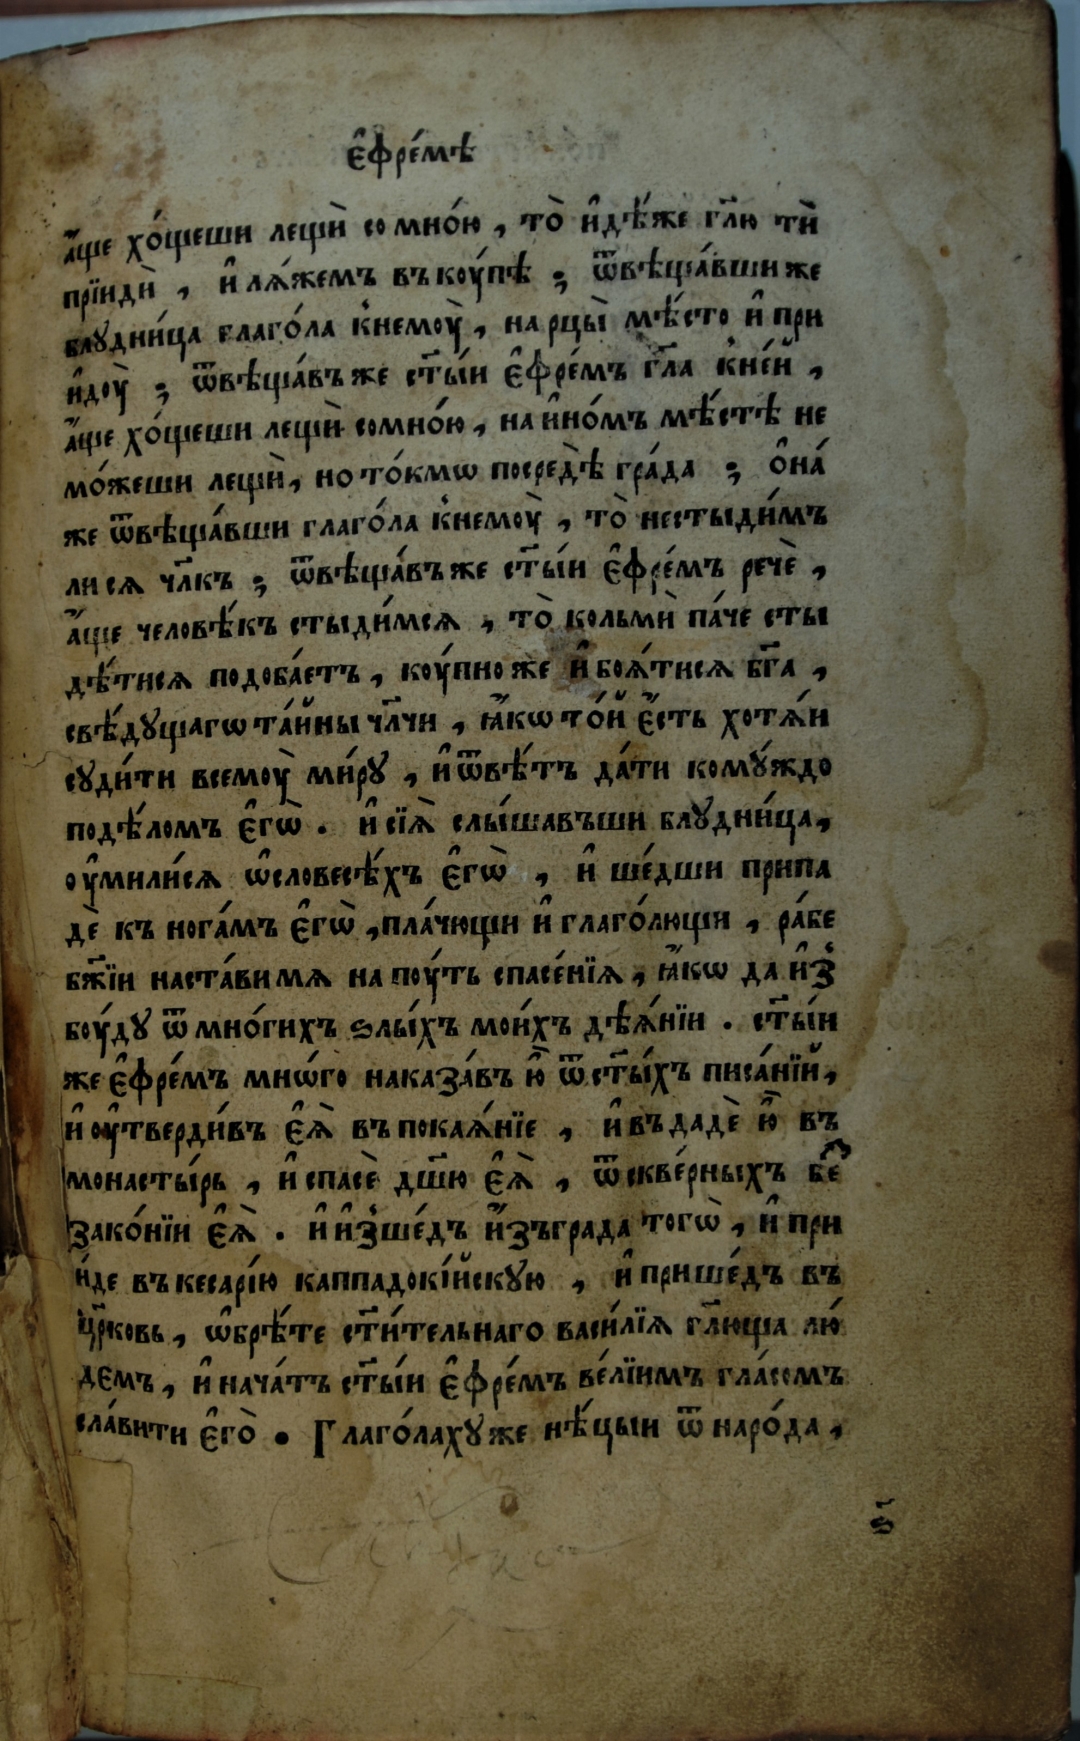 є҆фре́мѣ
а҆́ще хо́щеши лещѝ со мно́ю , то̀ и҆дѣ́же гл҃ю тѝ
прїидѝ , и҆ лѧ́жемъ въ коу́пѣ ; ѿвѣща́вши же
блꙋдни́ца глаго́ла к̾немоу̀ , на рцы̀ мѣ́сто и҆ при
и҆доу̀ ; ѿвѣща́въ же ст҃ы́и є҆фре́мъ гл҃а к̾не́й ,
а҆́ще хо́щеши лещѝ сомно́ю , на и҆но́мъ мѣ́стѣ не
мо́жеши лещѝ , но то́кмѡ посредѣ̀ гра́да ; о҆на́
же ѿвѣща́вши глаго́ла к̾немоу̀ , то̀ нестыди́мъ
ли сѧ чл҃къ ; ѿвѣща́въ же ст҃ы́и є҆фре́мъ речѐ ,
а҆́ще человѣ́къ стыди́мсѧ , то̀ кольмѝ па́че сты
дѣ́тисѧ подоба́етъ , коу́пно же и҆ боѧ́тисѧ бг҃а ,
свѣ́дꙋщагѡ та́йны чл҃чи , ꙗ҆́кѡ то́й є҆́сть хотѧ́и
сꙋди́ти всемоу̀ ми́рꙋ , и҆ ѿвѣ́тъ да́ти комꙋ́ждо
подѣ́ломъ є҆гѡ̀ . и҆ сїѧ̀ слы́шавъши блꙋдни́ца,
оу҆мили́сѧ ѡ҆словесѣ́хъ є҆гѡ̀ , и҆ ше́дши припа
дѐ къ нога́мъ є҆гѡ̀ ,пла́чющи и҆ глаго́лющи , ра́бе
бж҃їи наста́ви мѧ на поу́ть спасе́нїѧ , ꙗ҆́кѡ да и҆з̾
боу́дꙋ ѿ мно́гихъ ѕлы́хъ мои́хъ дѣѧ́нїи . ст҃ы́и
же є҆фре́мъ мнѡ́го наказа́въ ю҆̀ ѿ ст҃ы́хъ писа́нїй ,
и҆ оу҆тверди́въ є҆ѧ̀ въ покаѧ́нїе , и҆ въ дадѐ ю҆̀ въ
монасты́рь , и҆ спасѐ дш҃ю є҆ѧ̀ , ѿ скве́рныхъ беⷥ
зако́нїи є҆ѧ̀ . и҆ и҆з̾ше́дъ и҆́зъграда тогѡ̀ , и҆ при
и́де въ кесарі́ю каппадокі́йскꙋю , и҆ прише́дъ въ
цр҃ковь , ѡ҆брѣ́те ст҃и́тельнаго васи́лїѧ гл҃юща лю́
демъ , и҆ нача́тъ ст҃ы́и є҆фре́мъ ве́лїимъ гла́сомъ
сла́вити є҆го̀ . Глаго́лахꙋ же нѣ́цыи ѿ наро́да ,
ѕ҃